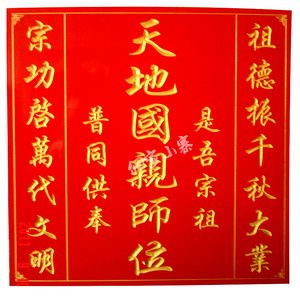 祖德振千秋大業
是吾宗祖
天地國親師位
普同供奉
宗功啓萬代文明